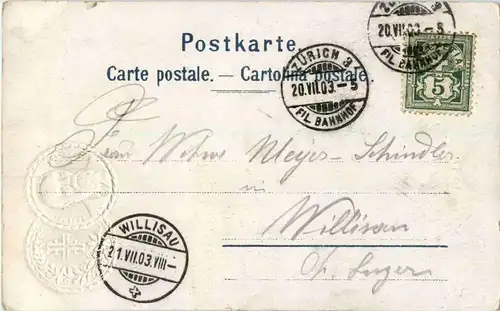 Postkarte.
Carte postale. — Cartolina postale.
ZÜRICH 3
20.VII.03.–5
FIL. BANNHOF
ZÜRICH 3
20.VII.03–5
FIL. BAHNHOF
5
Meyer-Schindler
in
Willisau
WILLISAU
21.VII.03.VIII–